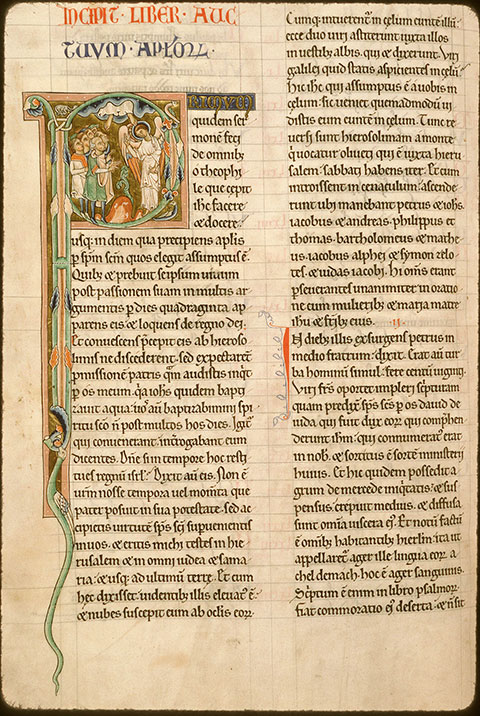 INCIPIT LIBER AUC
TUUM APLORŹ.
RIMUM
quidem ser
monē feci
de omnib;
o theophi
le que cepit
ihc facere
& docere
usq; in diem qua precipiens aplis
p spm scm quos elegit assumptus ē.
Quib; & prebuit seipsum uiuum
post passionem suam in multis ar
gumentis p dies quadraginta ap
parens eis & loquens de regno dei.
Et conuescens precepit eis ab hieroso
limis ne discederent. sed expectarent
pmissionē patris quā audistis inqt
p os meum. qa iohs quidem bapti
zauit aqua: uos aū baptizabimini spi
ritu sco n̄ post multos hos dies. Igit
qui conuenerant. interrogabant eum
dicentes. Dn̄e si in tempore hoc resti
tues regnū isrl. Dixit aū eis. Non ē
urm̄ nosse tempora uel momta que
pater posuit in sua potestate. sed ac
cipietis uirtutē sps sci supuenientis
in uos. & eritis michi testes in hie
rusalem & in omni iudea & sama
ria: & usq; ad ultimū terre. Et cum
hec dixisset. uidentib; illis eleuat' ē.
& nubes suscepit eum ab oclis eorȝ.
Cumq; intuerent̄ in celum euntē illū:
ecce duo uiri astiterunt iuxta illos
in uestib; albis. qui & dixerunt. Viri
galilei quid statis aspicientes in celū.
hic ihc qui assumptus ē a uobis in
celum: sic ueniet quemadmodū ui
distis eum euntem in celum. Tunc re
uersi sunt hierosolimam a monte
q uocatur oliueti qui ē iuxta hieru
salem. sabbati habens iter. Et cum
introissent in cenaculum. ascende
runt ubi manebant petrus & iohs.
iacobus & andreas. philippus et
thomas. bartholomeus & mathe
us. iacobus alphei & symon zelo
tes. & iudas iacobi. hi om̄s erant
pseuerantes unanimiter in oratio
ne cum mulierib; & maria matre
ihu & frib; eius. II
In dieb; illis exsurgens petrus in
medio fratrum: dixit. Erat aū tur
ba hominū simul. fere centū uiginti.
Viri frs oportet impleri scripturam
quam predixit sps scs p os dauid de
iuda. qui fuit dux eorȝ qui comphen
derunt ihm: qui connumerat' erat
in nob. & sortitus ē sortē ministerii
huius. Et hic quidem possedit a
grum de mercede iniqtatis: & sus
pensus. crepuit medius. & diffusa
sunt omia uiscera ei'. Et notū factū
ē omib; habitantib; hierlm. ita ut
appellaret ager ille lingua eorȝ a
chel demach. hoc ē ager sanguinis.
Scriptum ē enim in libro psalmorȝ.
Fiat commoratio ei' deserta. & n̄ sit